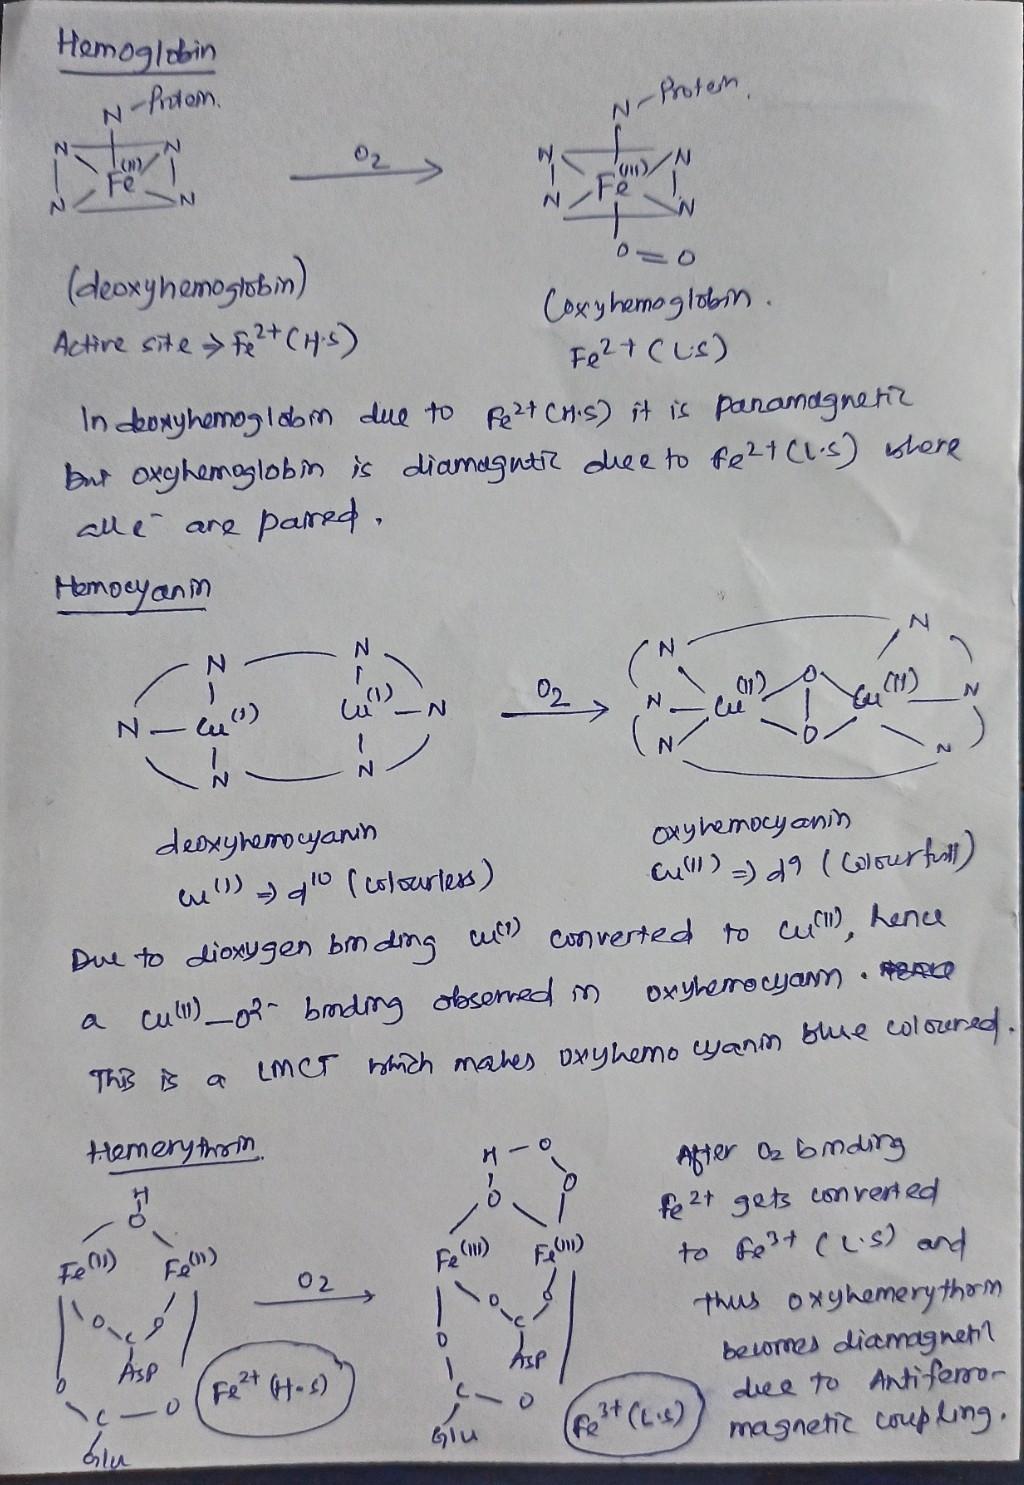 Hemoglobin
N-Protein.
N N
Fe(II)
N N
O2
N-Protein.
N N
Fe(III)
N N
O=O
(deoxyhemoglobin)
Active site → Fe2+ (H.S)
(oxyhemoglobin.
Fe2+ (L.S)
In deoxyhemoglobin due to Fe2+ (H.S) it is paramagnetic
but oxyhemoglobin is diamagnetic due to Fe2+ (L.S) where
all e- are paired.
Hemocyanin
N N
N - Cu(I) Cu(I) - N
N N
O2
N N
N - Cu(II) O Cu(II) - N
N O N
deoxyhemocyanin
Cu(I) ⇒ d10 (colourless)
oxyhemocyanin
Cu(II) ⇒ d9 (colourfull)
Due to dioxygen binding Cu(I) converted to Cu(II), hence
a Cu(II)-O2- binding observed in oxyhemocyanin.
This is a LMCT which makes oxyhemocyanin blue coloured.
Hemerythrin.
H
O
Fe(II) Fe(II)
O C O
Asp
O C - O
Glu
Fe2+ (H.S)
O2
H - O
O O
Fe(III) Fe(III)
O C O
O Asp
C - O
Glu
Fe3+ (L.S)
After O2 binding
Fe2+ gets converted
to Fe3+ (L.S) and
thus oxyhemerythrin
becomes diamagnetic
due to Antiferro-
magnetic coupling.